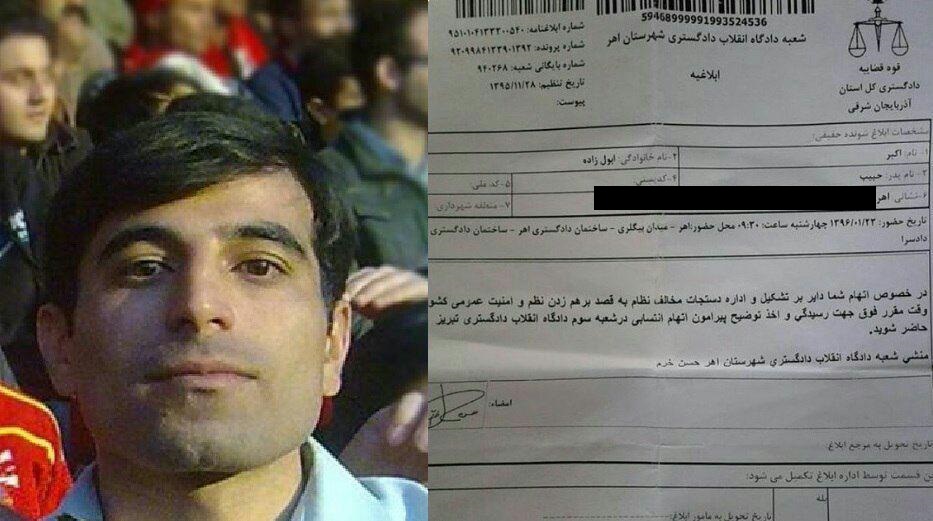 5946899999199352​4536
شعبه دادگاه انقلاب دادگستری شهرستان اهر
ابلاغیه
قوه قضاییه
دادگستری کل استان
آذربایجان شرقی
شماره ابلاغنامه: ۹۵۱۰۱۰۴۱۳۳۲۰۰۵۴۰
شماره پرونده: ۹۲۰۹۹۸۴۱۳۳۹۰۱۳۹۲
شماره بایگانی شعبه: ۹۴۰۲۶۸
تاریخ تنظیم: ۱۳۹۵/۱۱/۲۸
پیوست:
مشخصات ابلاغ شونده حقیقی:
۱- نام: اکبر ۲- نام خانوادگی: ابول زاده
۳- نام پدر: حبیب ۴- کدپستی: ۵- کد ملی:
۶- نشانی: اهر ۷- منطقه شهرداری:
تاریخ حضور: ۱۳۹۶/۰۱/۲۳ چهارشنبه ساعت: ۰۹:۳۰ محل حضور: اهر - میدان بیگلری - ساختمان دادگستری اهر - ساختمان دادگستری
دادسرا
در خصوص اتهام شما دایر بر تشکیل و اداره دستجات مخالف نظام به قصد برهم زدن نظم و امنیت عمومی کشو
وقت مقرر فوق جهت رسیدگی و اخذ توضیح پیرامون اتهام انتسابی درشعبه سوم دادگاه انقلاب دادگستری تبریز
حاضر شوید.
منشی شعبه دادگاه انقلاب دادگستری شهرستان اهر حسن خرم
امضاء:
تاریخ تحویل به مرجع ابلاغ:
ن قسمت توسط اداره ابلاغ تکمیل می شود:
بله
تاریخ تحویل به مامور ابلاغ: